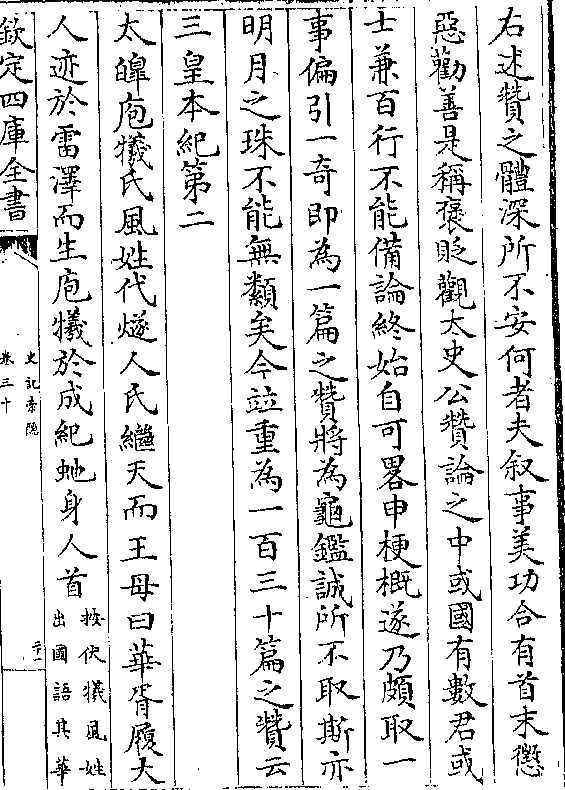 右述贊之體深所不安何者夫叙事美功合有首末懲
惡勸善是稱褒貶觀太史公贊論之中或國有數君或
士兼百行不能備論終始自可畧申梗概遂乃頗取一
事偏引一奇即為一篇之贊將為龜鑑誠所不取斯亦
明月之珠不能無纇矣今竝重為一百三十篇之贊云
三皇本紀第二
太皥庖犧氏風姓代燧人氏繼天而王母曰華胥履大
人迹於雷澤而生庖犧於成紀虵身人首
按伏犧風姓
出國語其華
欽定四庫全書
史記索隱
卷三十
二十一